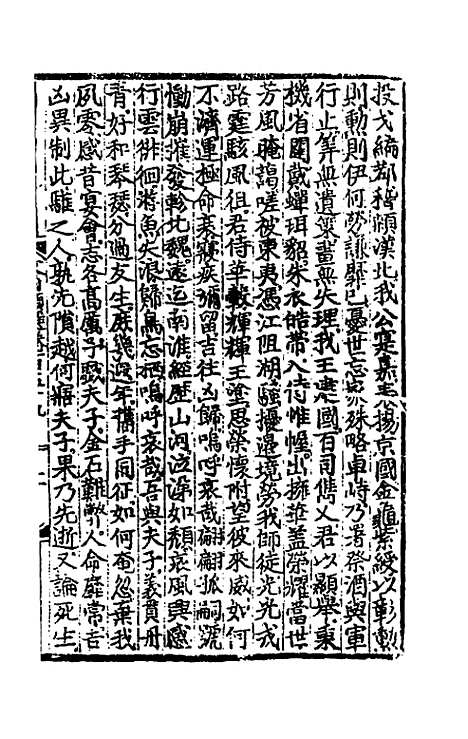 投戈編鄀稽顙漢北我公寔嘉表揚京國金龜紫綬以彰勲
則勲則伊何勞謙靡已憂世忘家殊略卓峙乃署祭酒與軍
行止筭無遺策畫無失理我王建國百司儁乂君以顯舉秉
機省闥戴蟬珥貂朱衣皓帶入侍帷幄出擁華蓋榮耀當世
芳風晻藹嗟彼東夷憑江阻湖騷擾邊境勞我師徒光光戎
路霆駭風徂君侍華轂輝輝王塗思榮懷附望彼來威如何
不濟運極命衰寢疾彌留吉往凶歸嗚呼哀哉翩翩孤嗣號
慟崩摧發軫北魏遠迄南淮經歷山河泣涕如頹哀風興感
行雲徘徊游魚失浪歸鳥忘栖嗚呼哀哉吾與夫子義貫丹
青好和琴瑟分過友生庶幾遐年攜手同征如何奄忽棄我
夙零感昔宴會志各高厲予戲夫子金石難弊人命靡常吉
凶異制此驩之人孰先隕越何寤夫子果乃先逝又論死生